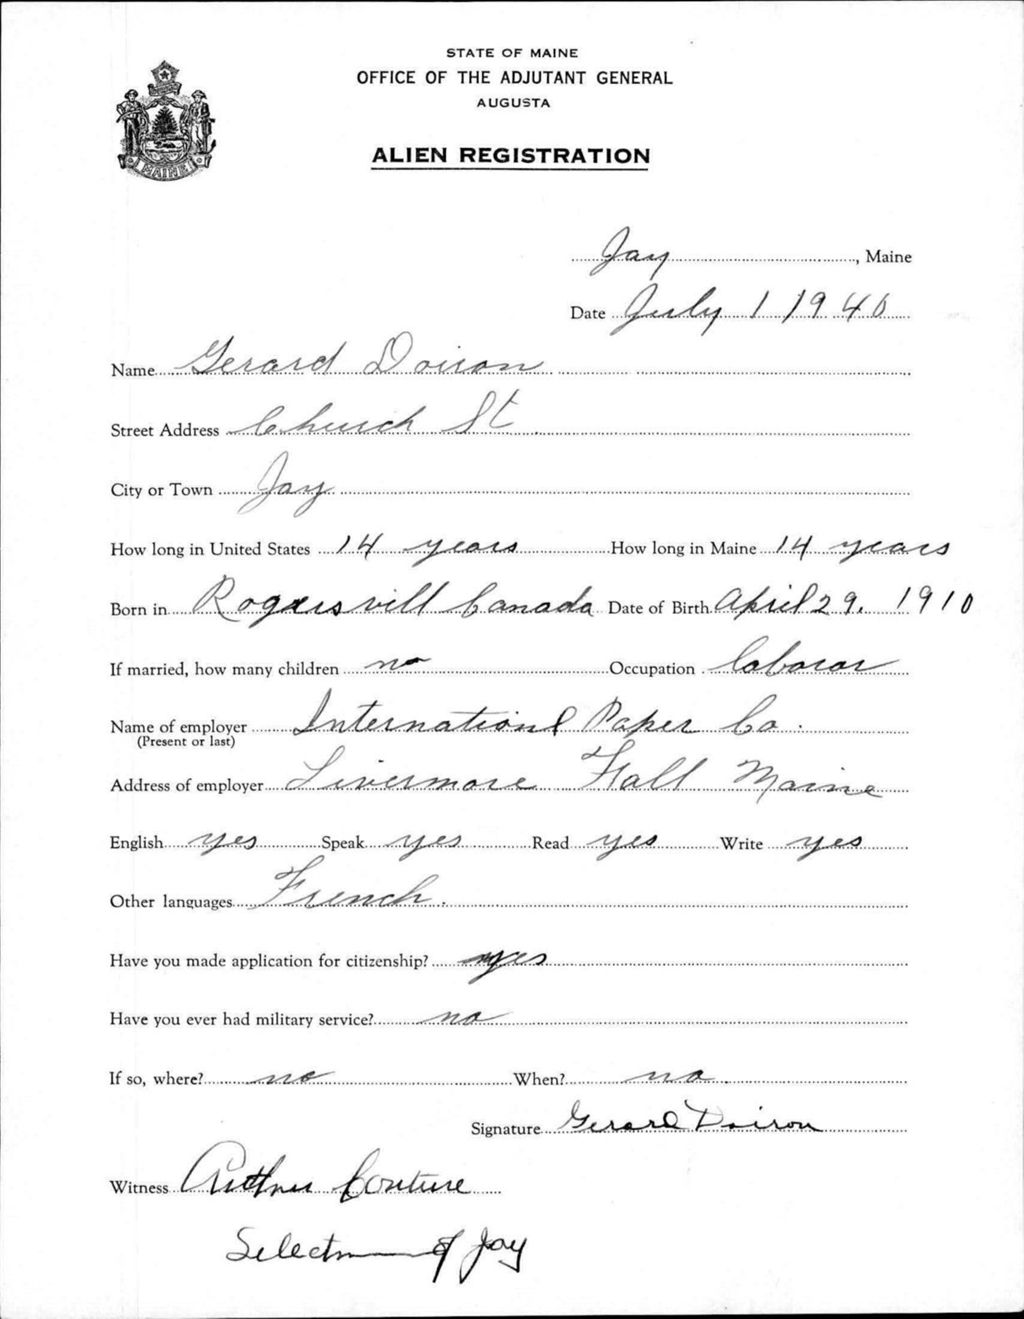 STATE OF MAINE
OFFICE OF THE ADJUTANT GENERAL
AUGUSTA
ALIEN REGISTRATION
MAINE
Jay, Maine
Date July 1 1940
Name Gerard Doiron
Street Address Church St
City or Town Jay
How long in United States 14 years How long in Maine 14 years
Born in Rogersvill Canada Date of Birth April 29, 1910
If married, how many children no Occupation laborar
Name of employer International Paper Co.
(Present or last)
Address of employer Livermore Fall Maine
English yes Speak yes Read yes Write yes
Other languages French.
Have you made application for citizenship? yes
Have you ever had military service? no
If so, where? no When? no
Signature Gerard Doiron
Witness Arthur Couture
Selectm of Jay